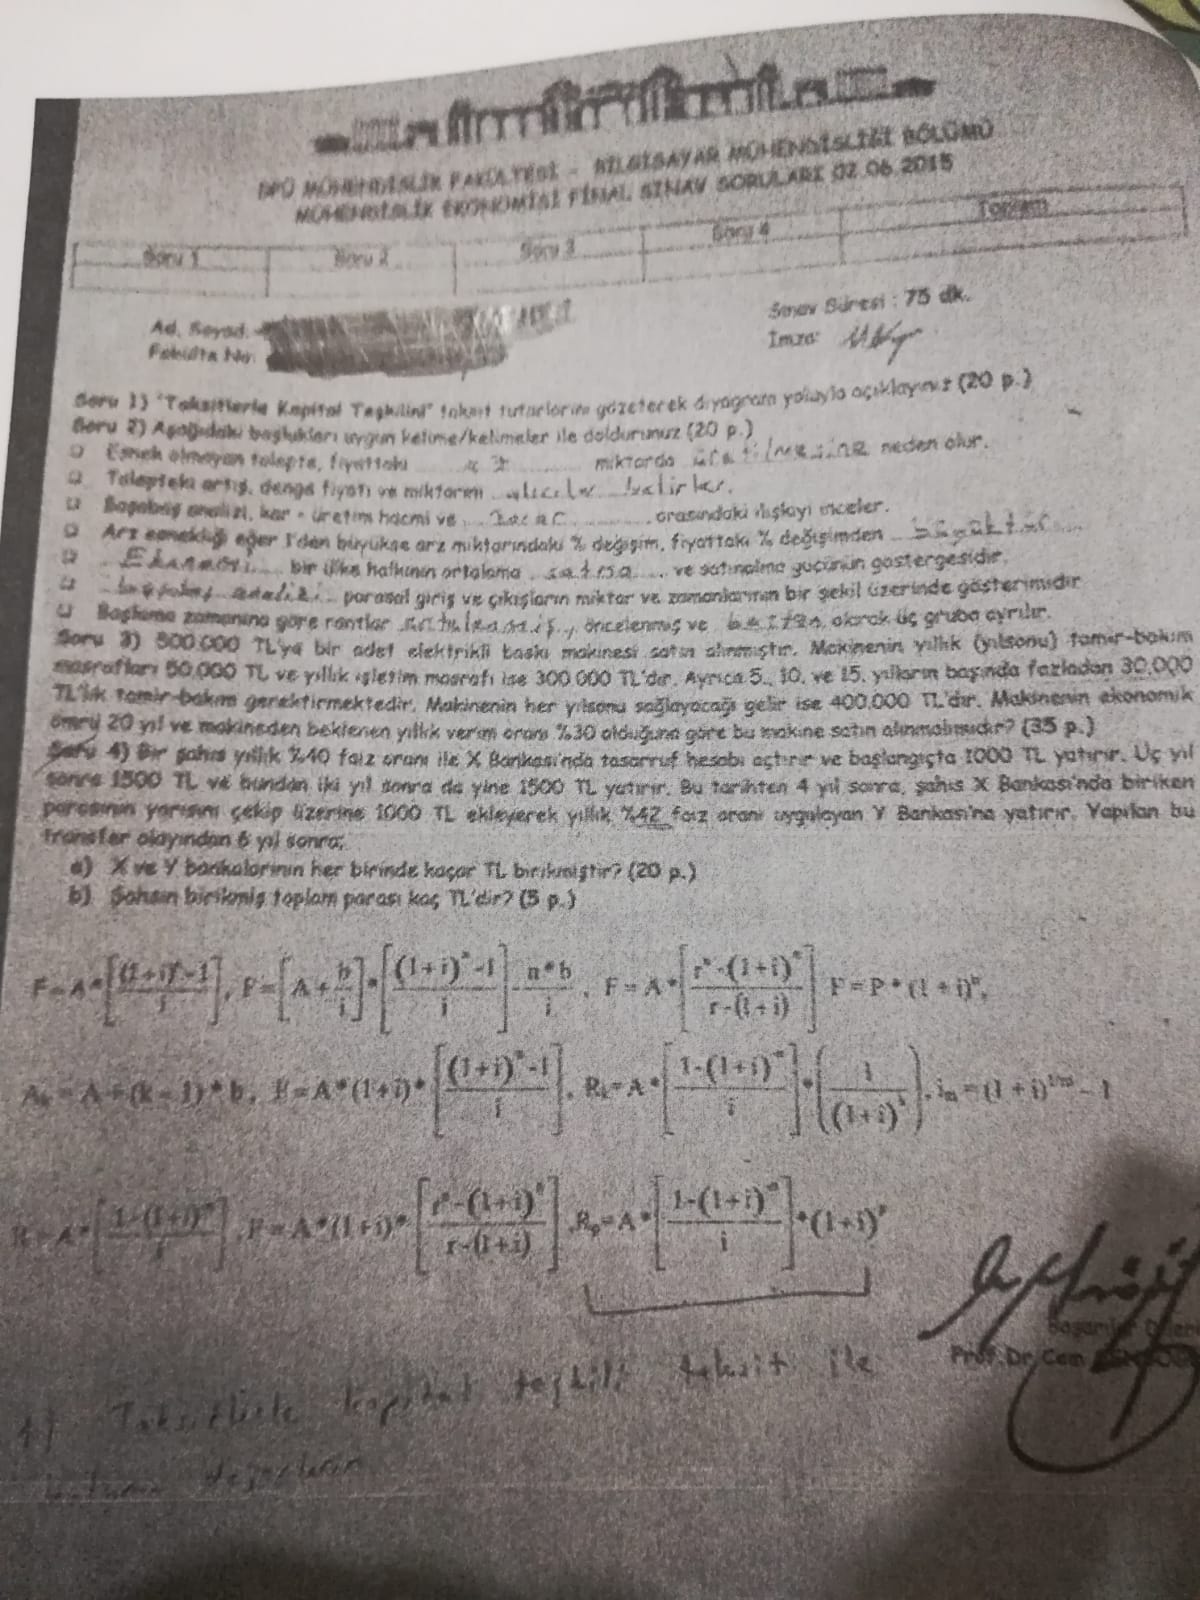 DPÜ MÜHENDİSLİK FAKÜLTESİ - BİLGİSAYAR MÜHENDİSLİĞİ BÖLÜMÜ
MÜHENDİSLİK EKONOMİSİ FİNAL SINAV SORULARI 02.06.2015
Soru 1 Soru 2 Soru 3 Soru 4 Toplam
Ad, Soyad:
Sınav Süresi : 75 dk.
Fakülte No:
İmza:
Soru 1) "Taksitlerle Kapital Teşkilini" taksit tutarlarını gözeterek diyagram yoluyla açıklayınız (20 p.)
Soru 2) Aşağıdaki boşlukları uygun kelime/kelimeler ile doldurunuz (20 p.)
Esnek olmayan talepte, fiyattaki miktarda neden olur.
Talepteki artış, denge fiyatı ve miktarını alıcılar belirler.
Başabaş analizi, kar - üretim hacmi ve arasındaki ilişkiyi inceler.
Arz esnekliği eğer 1'den büyükse arz miktarındaki % değişim, fiyattaki % değişimden büyüktür
Ekonomi bir ülke halkının ortalama satma ve satınalma gücünün göstergesidir.
başabaş analizi parasal giriş ve çıkışların miktar ve zamanlarının bir şekil üzerinde gösterimidir
Başlama zamanına göre rantlar öncelenmiş ve olarak üç gruba ayrılır.
Soru 3) 500.000 TL'ya bir adet elektrikli baskı makinesi satın alınmıştır. Makinenin yıllık (yılsonu) tamir-bakım
masrafları 50.000 TL ve yıllık işletim masrafı ise 300.000 TL'dır. Ayrıca 5., 10. ve 15. yılların başında fazladan 30.000
TL'lik tamir-bakım gerektirmektedir. Makinenin her yılsonu sağlayacağı gelir ise 400.000 TL'dır. Makinenin ekonomik
ömrü 20 yıl ve makineden beklenen yıllık verim oranı %30 olduğuna göre bu makine satın alınmalımıdır? (35 p.)
Soru 4) Bir şahıs yıllık %40 faiz oranı ile X Bankası'nda tasarruf hesabı açtırır ve başlangıçta 1000 TL yatırır. Üç yıl
sonra 1500 TL ve bundan iki yıl sonra da yine 1500 TL yatırır. Bu tarihten 4 yıl sonra, şahıs X Bankası'nda biriken
parasının yarısını çekip üzerine 1000 TL ekleyerek yıllık %42 faiz oranı uygulayan Y Bankası'na yatırır. Yapılan bu
transfer olayından 6 yıl sonra;
a) X ve Y bankalarının her birinde kaçar TL birikmiştir? (20 p.)
b) Şahsın birikmiş toplam parası kaç TL'dir? (5 p.)
F=A*[((1+i)^n-1)/i], F=[A+b/i]*[((1+i)^n-1)/i]-(n*b)/i, F=A*[(r^n-(1+i)^n)/(r-(1+i))] F=P*(1+i)^n,
A_k=A+(k-1)*b, F=A*(1+i)*[((1+i)^n-1)/i], R_k=A*[(1-(1+i)^-n)/i]*(1/(1+i)^k), i_m=(1+i)^1/m-1
R=A*[(1-(1+i)^-n)/i], F=A*(1+i)*[(r^n-(1+i)^n)/(r-(1+i))], R_p=A*[(1-(1+i)^-n)/i]*(1+i)^p
Başarılar
Prof. Dr. Cem
1) Taksitlerle kapital teşkili taksit ile